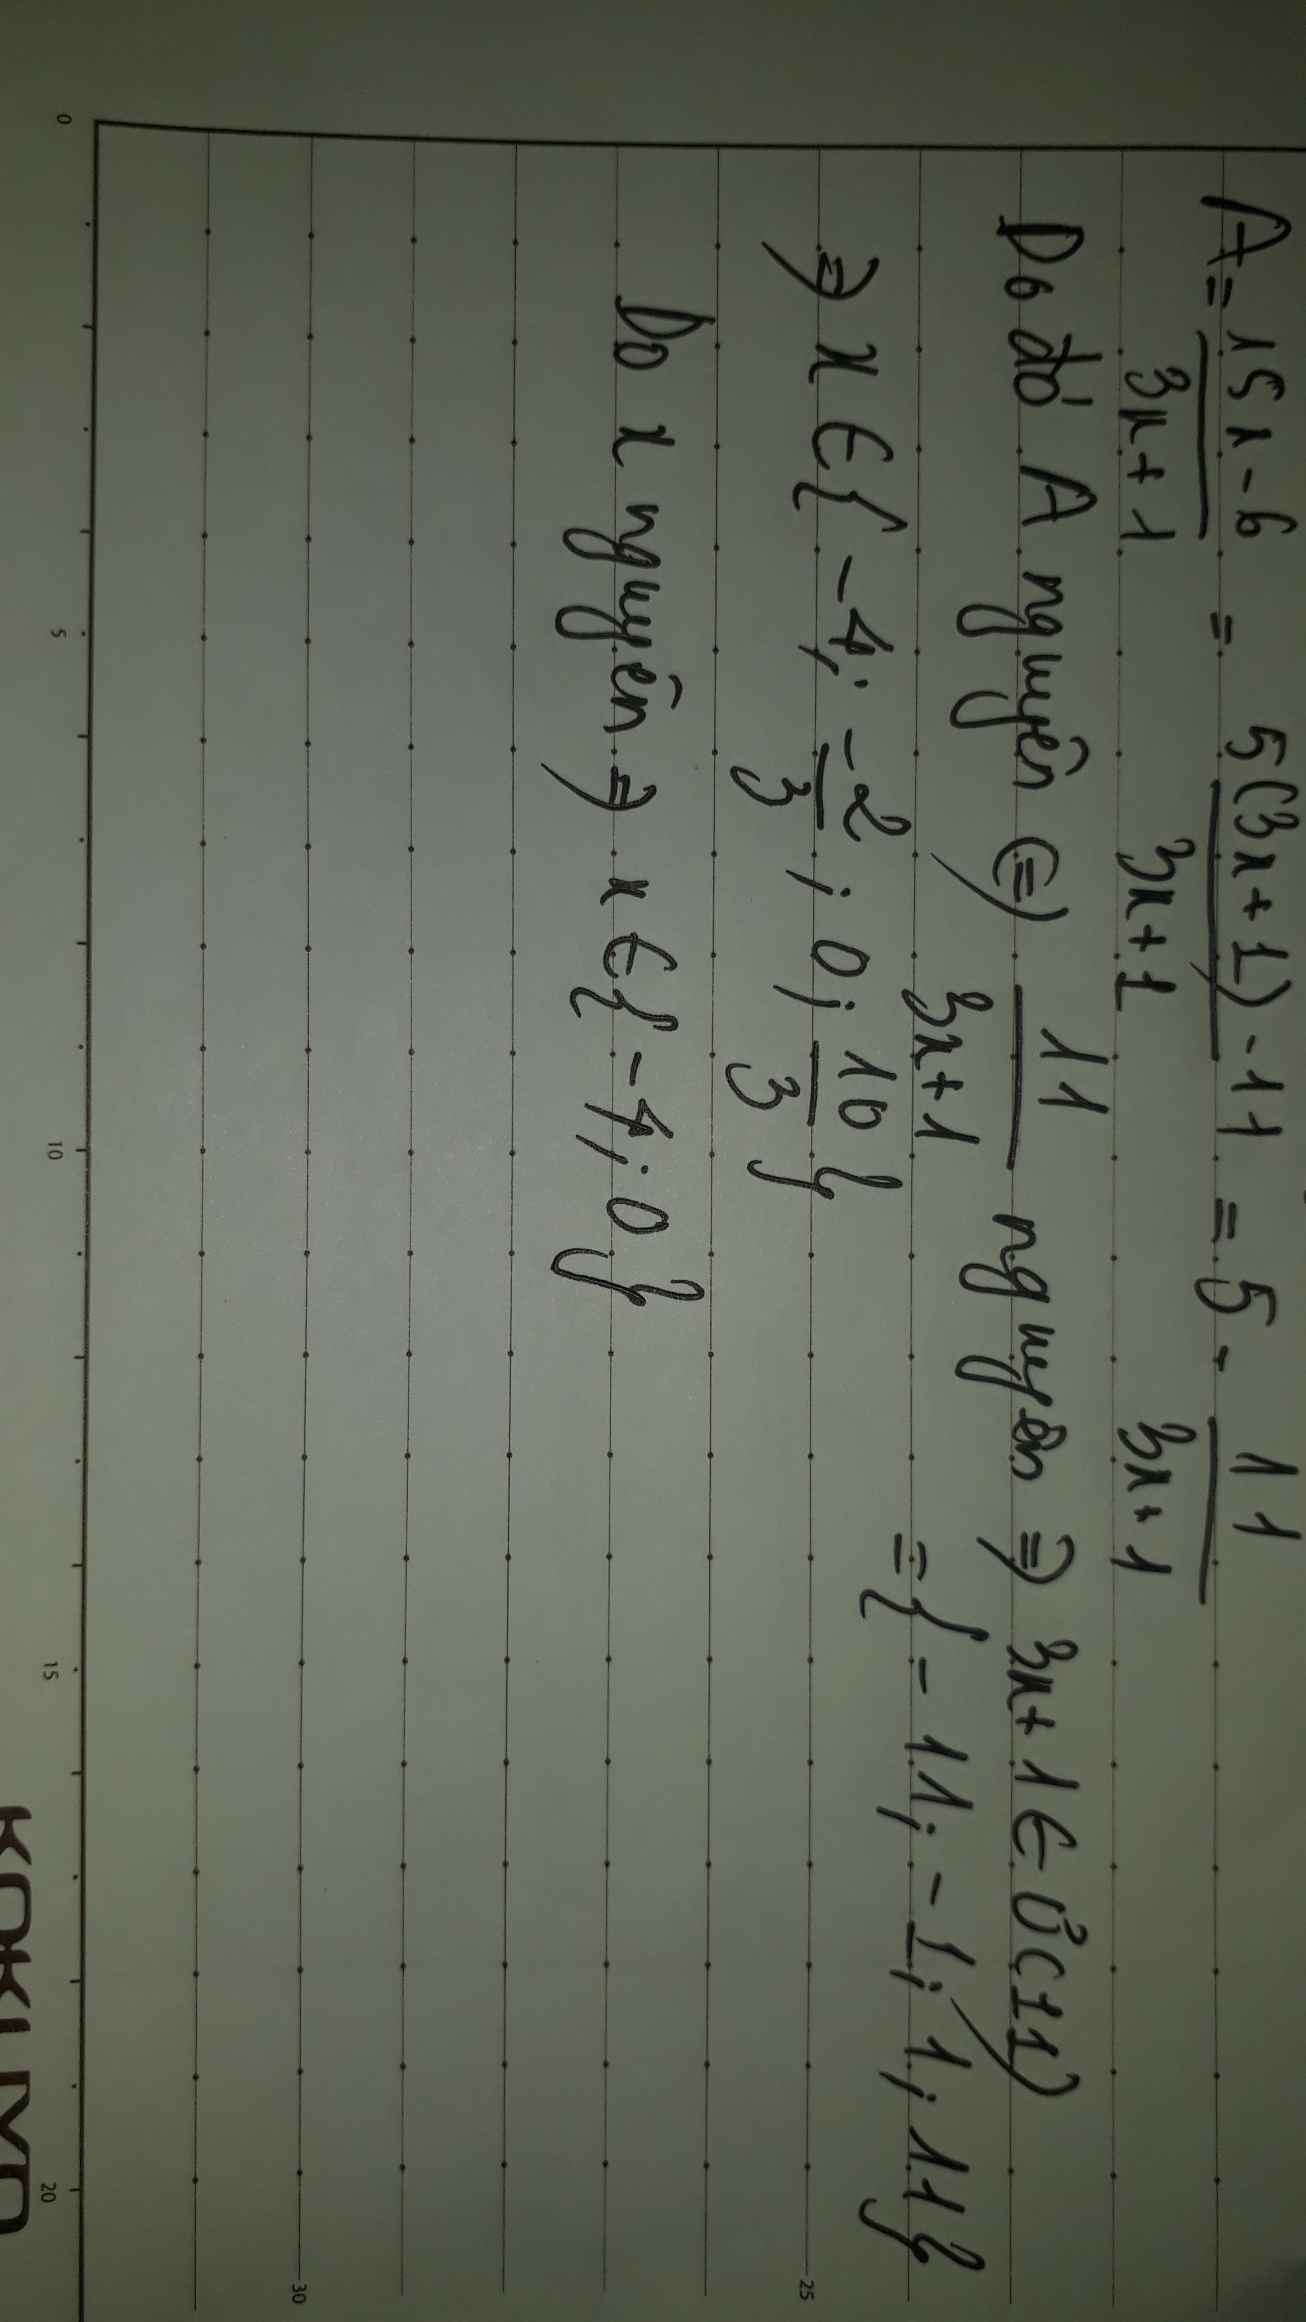 A = 15x - 6 / 3x + 1 = 5(3x + 1) - 11 / 3x + 1 = 5 - 11 / 3x + 1
Do đó A nguyên (=) 11 / 3x + 1 nguyên => 3x + 1 ∈ Ư(11)
= { - 11; - 1; 1; 11}
=> x ∈ { - 4; -2/3; 0; 10/3 }
Do x nguyên => x ∈ { - 4; 0 }
0 5 10 15 20
25
30
KOKUYO